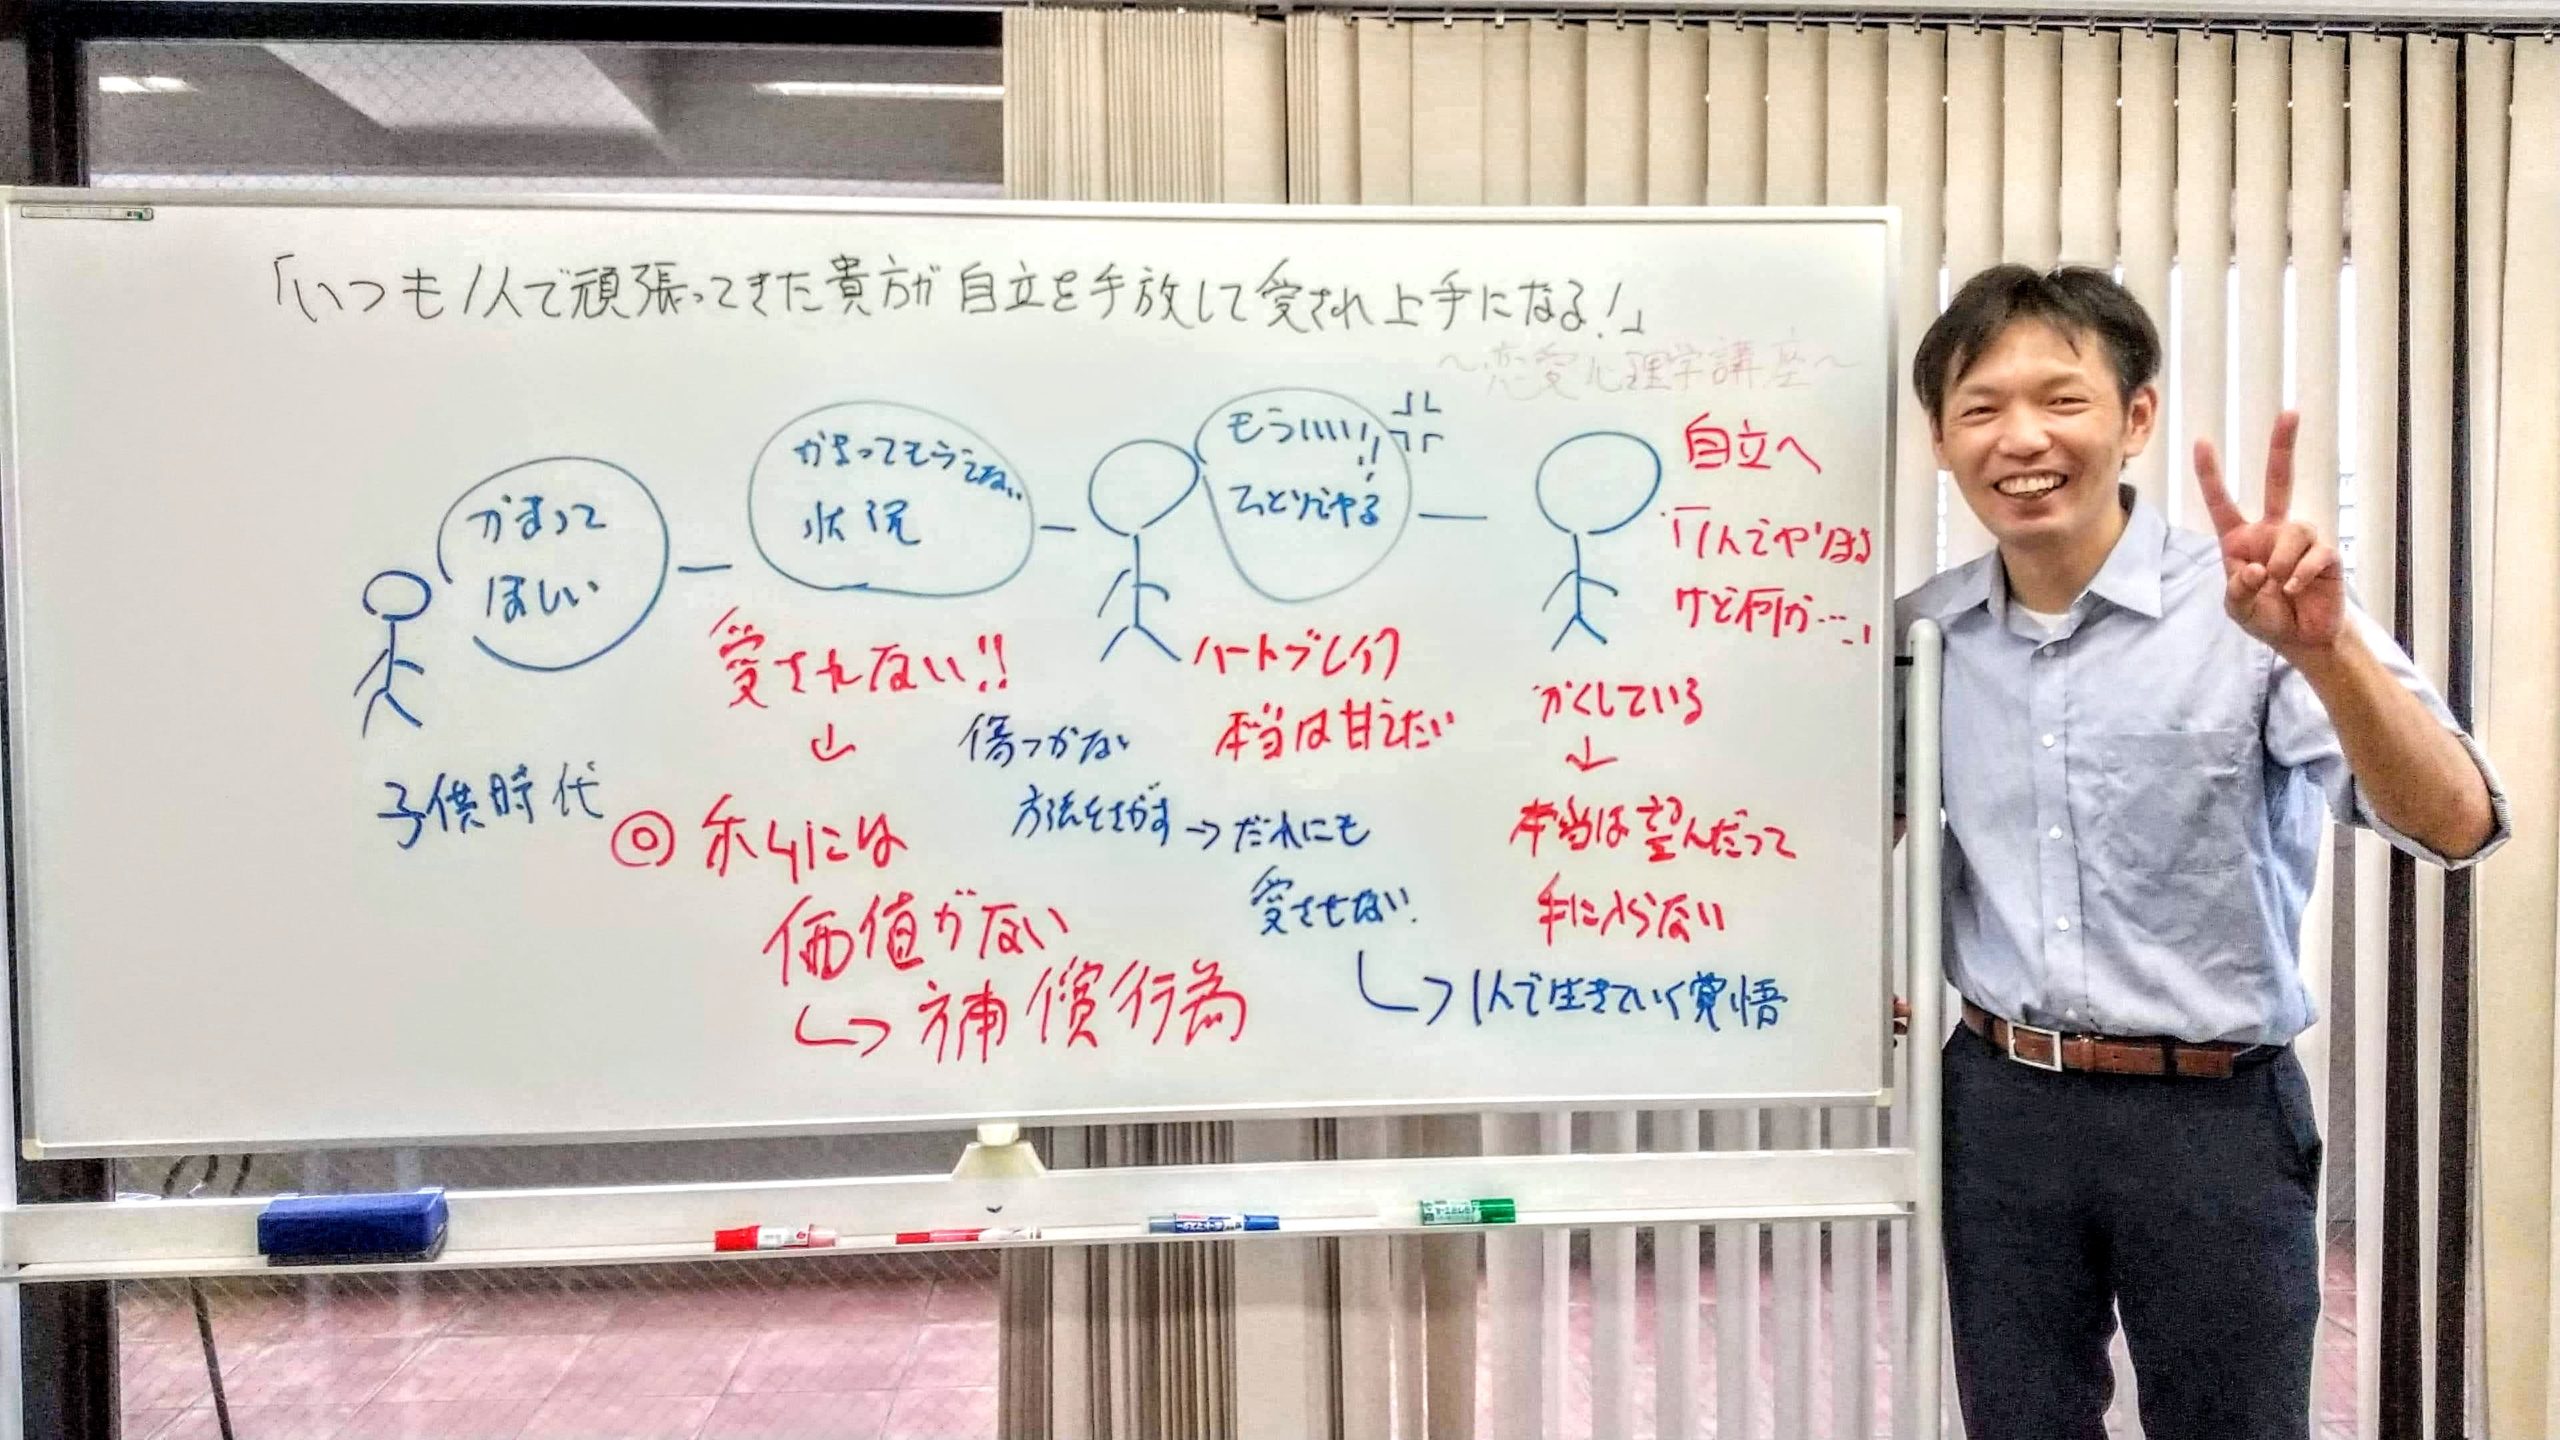 「いつも1人で頑張ってきた貴方が自立を手放して愛され上手になる!」
～恋愛心理学講座～
かまって
ほしい
子供時代
かまってもらえない
状況
愛されない!!
↓
◎ ホントは
価値がない
↳ 補償行為
もういいい!!
ひとりでやる
ハートブレイク
本当は甘えたい
傷つかない
方法をさがす→だれにも
愛させない
↳ 1人で生きていく覚悟
自立へ
「1人でやれる
けど何か…」
かくしている
↓
本当は望んだって
手に入らない